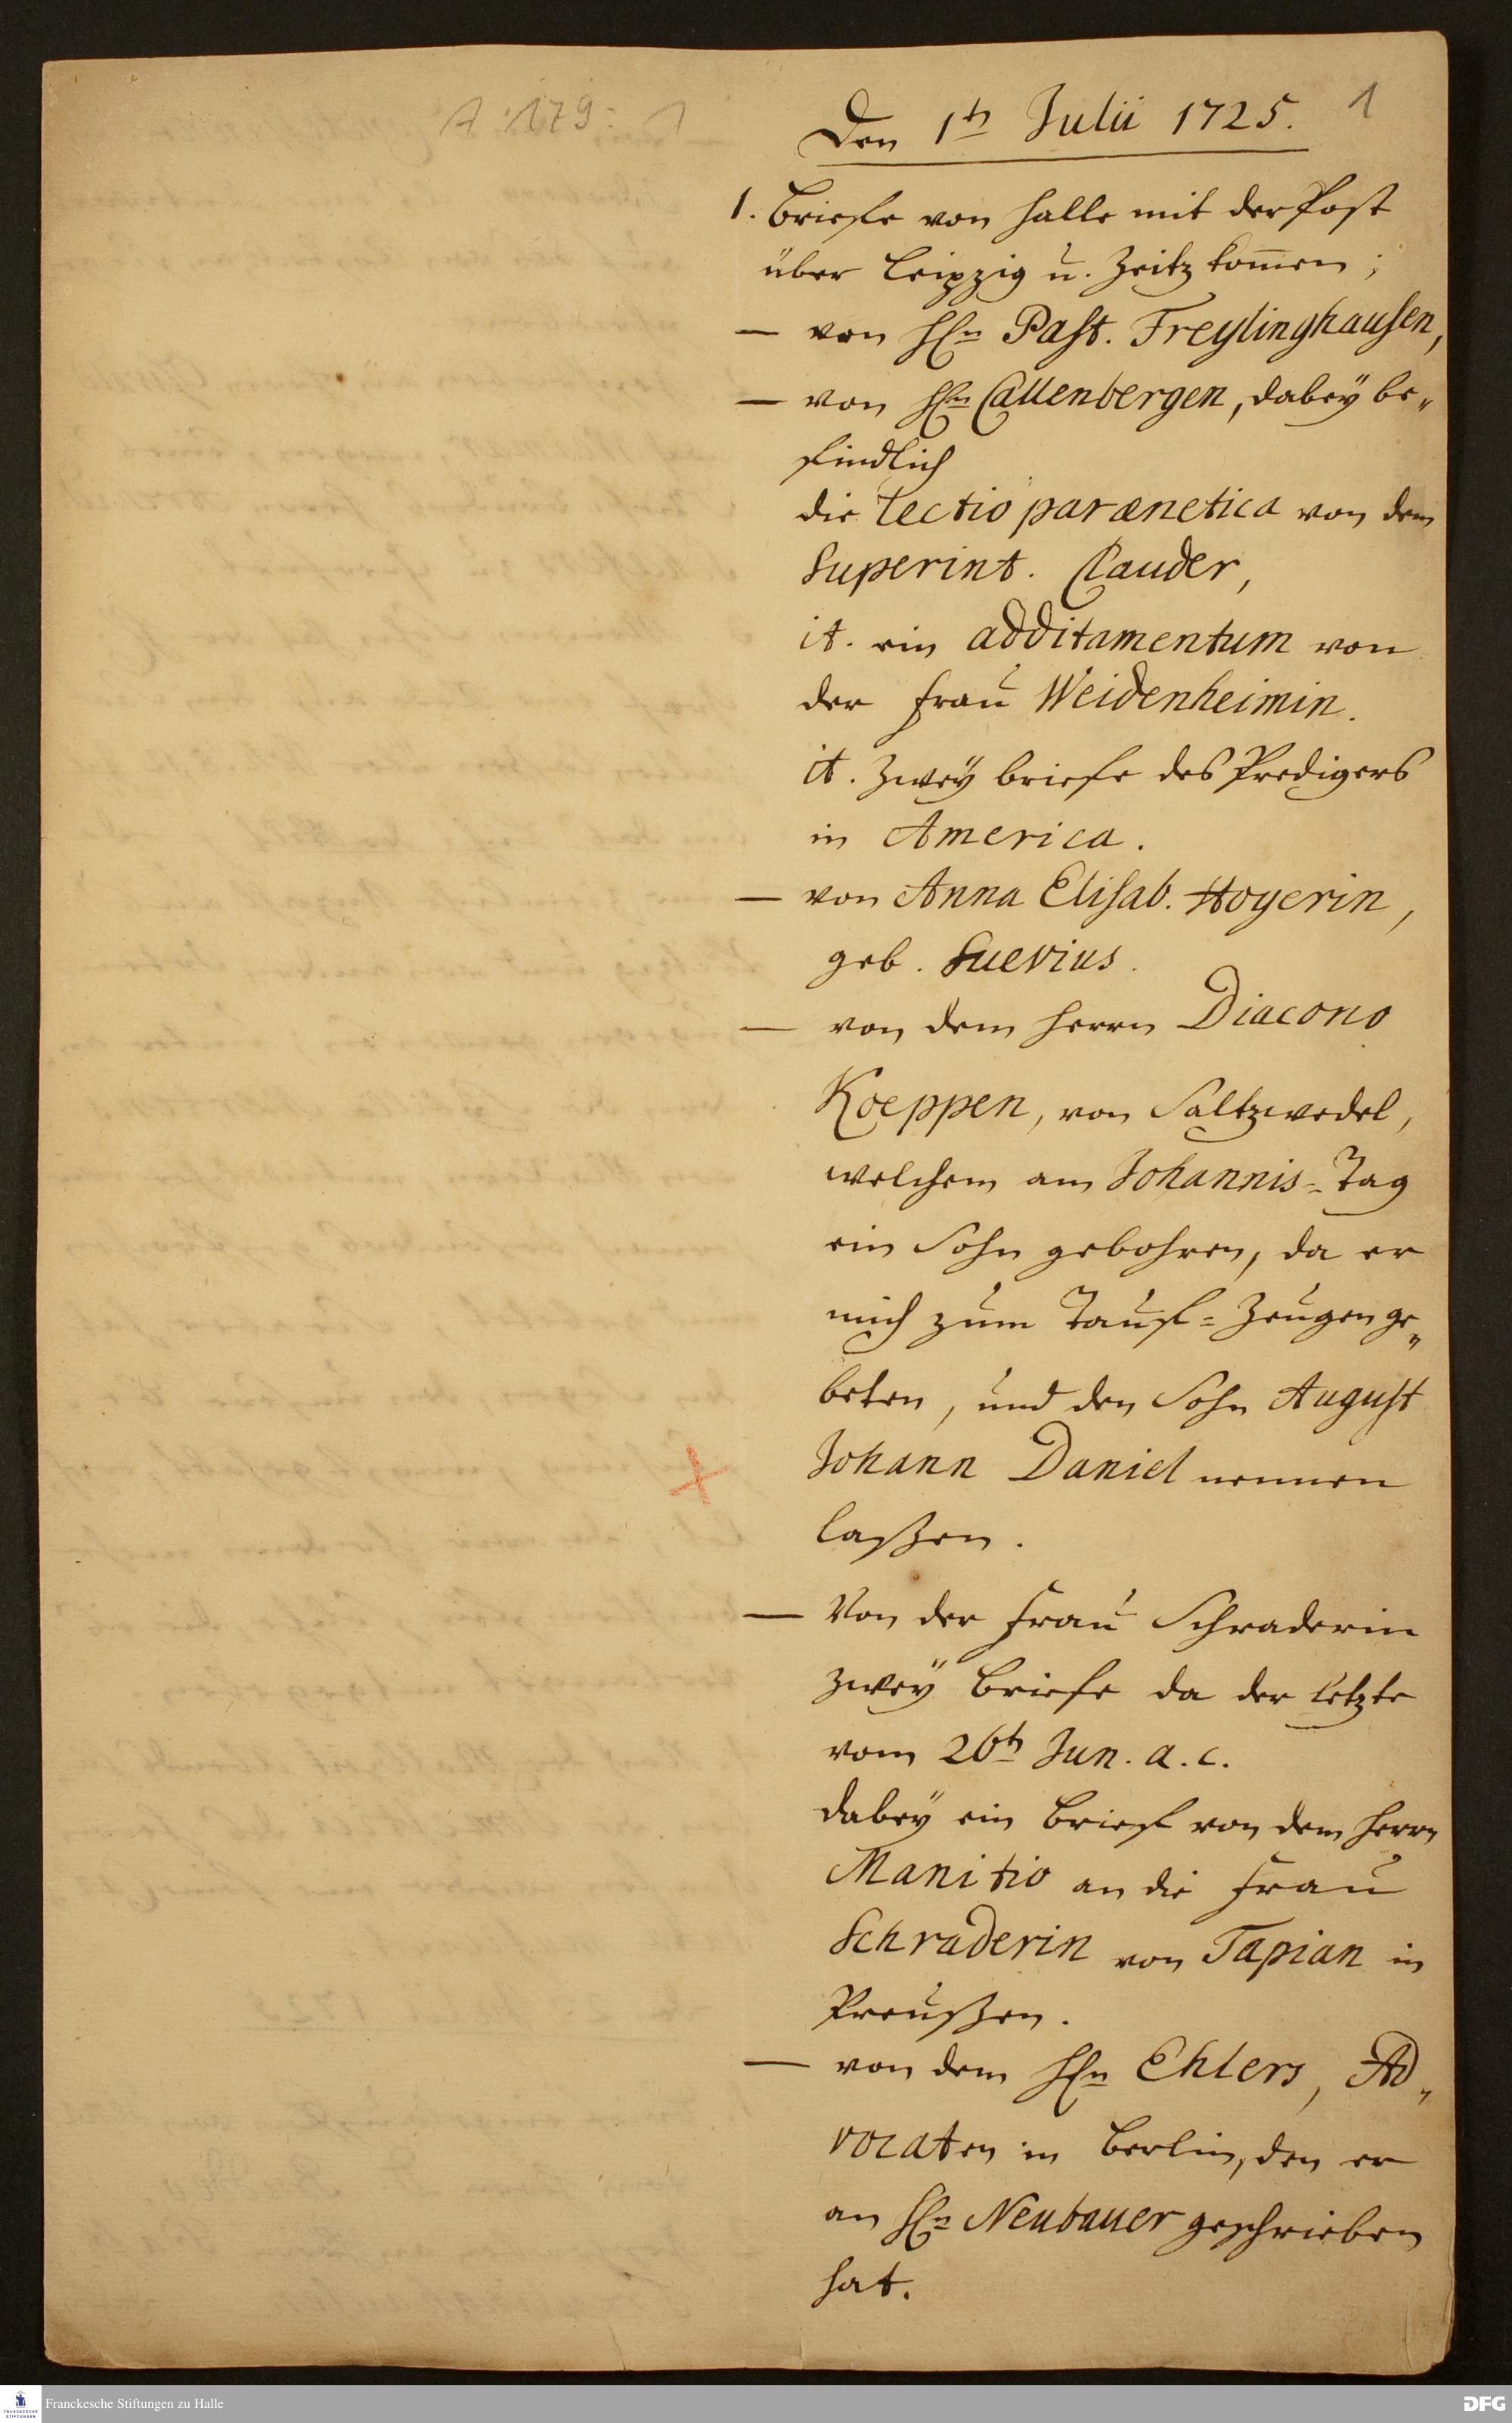 A:179: 1
1
Den 1th Julii 1725.
1. Briefe von Halle mit der Post
über Leipzig u. Zeitz kom̄en;
— von HEn Past. Freylinghausen,
— von HEn Callenbergen, dabey be„
findlich
die Lectio parænetica von dem
Superint. Cauder,
it. ein additamentum von
der Frau Weidenheimin.
it. Zwey briefe des Predigers
in America.
— von Anna Elisab. Hoyerin,
geb. Suevius.
— von dem Herrn Diacono
Koeppen, von Saltzwedel,
welchem am Johannis=Tag
ein Sohn gebohren, da er
mich zum Tauf=Zeugen ge„
beten, und den Sohn August
Johann Daniel nennen
laßen.
— Von der Frau Schraderin
zwey Briefe da der letzte
vom 26th Jun. a. c.
dabey ein Brief von dem Herrn
Manitio an die Frau
Schraderin von Tapian in
Preußen.
— von dem HEn Ehlers, Ad„
vocaten in Berlin, den er
an HEn Neubauer geschrieben
hat.
Franckesche Stiftungen zu Halle
DFG